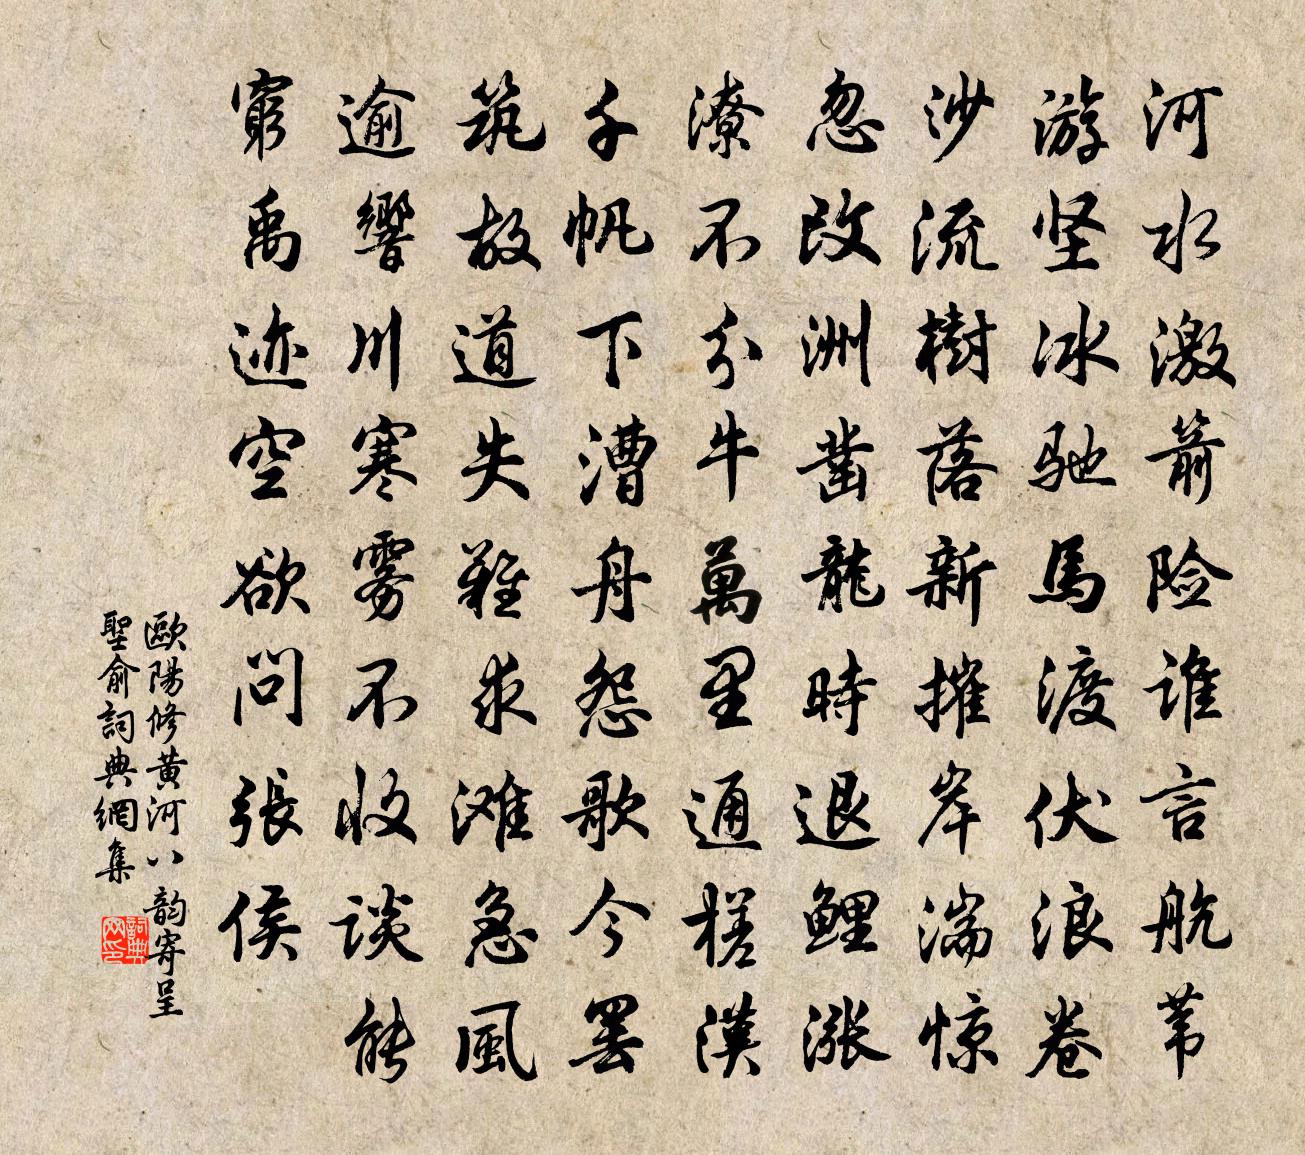 河水激箭险谁言航苇
游坚冰驰馬渡伏浪卷
沙流樹落新摧岸湍惊
忽改洲凿龍時退鲤漲
潦不分牛萬里通槎漢
千帆下漕舟怨歌今罢
筑故道失難求滩急風
逾響川寒雾不收谈能
窮禹迹空欲问張侯
歐陽修黄河八韵寄呈
聖俞詞典網集
詞典